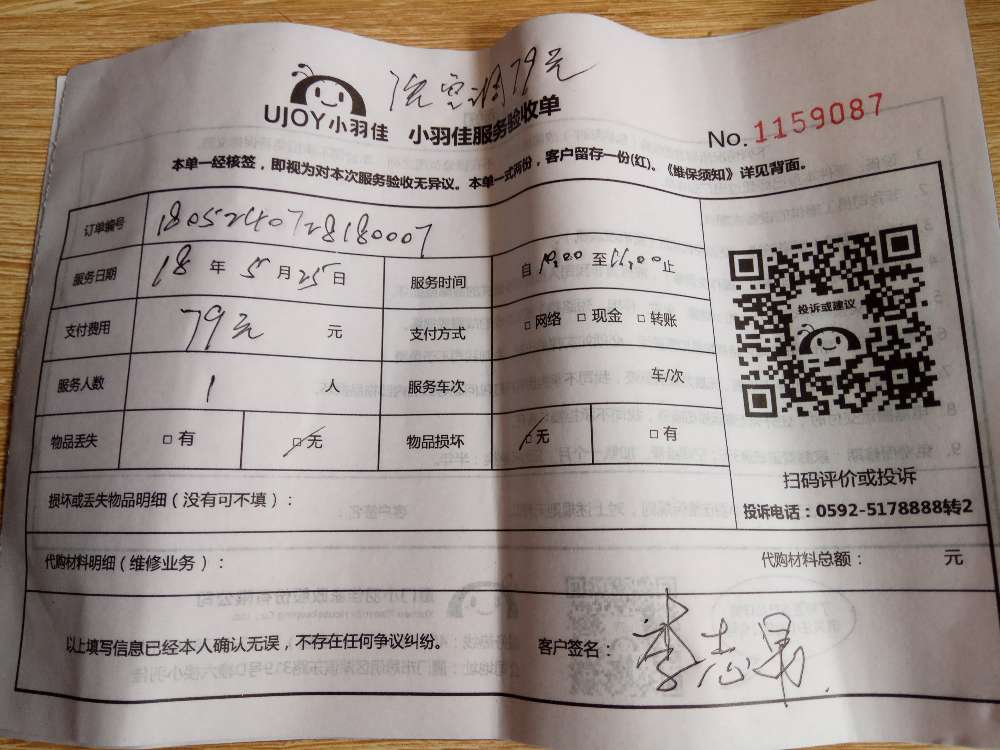 洗空调79元
UJOY小羽佳 小羽佳服务验收单
No. 1159087
本单一经核签，即视为对本次服务验收无异议。本单一式两份，客户留存一份(红)。《维保须知》详见背面。
订单编号 1805240728180007
服务日期 18 年 5 月 25 日 服务时间 自 10:00 至 11:00 止
支付费用 79元 元 支付方式 □网络 □现金 □转账
服务人数 1 人 服务车次 车/次
物品丢失 □有 □无 物品损坏 □无 □有
投诉或建议
扫码评价或投诉
投诉电话：0592-5178888转2
损坏或丢失物品明细（没有可不填）：
代购材料明细（维修业务）： 代购材料总额： 元
以上填写信息已经本人确认无误，不存在任何争议纠纷。 客户签名： 李志